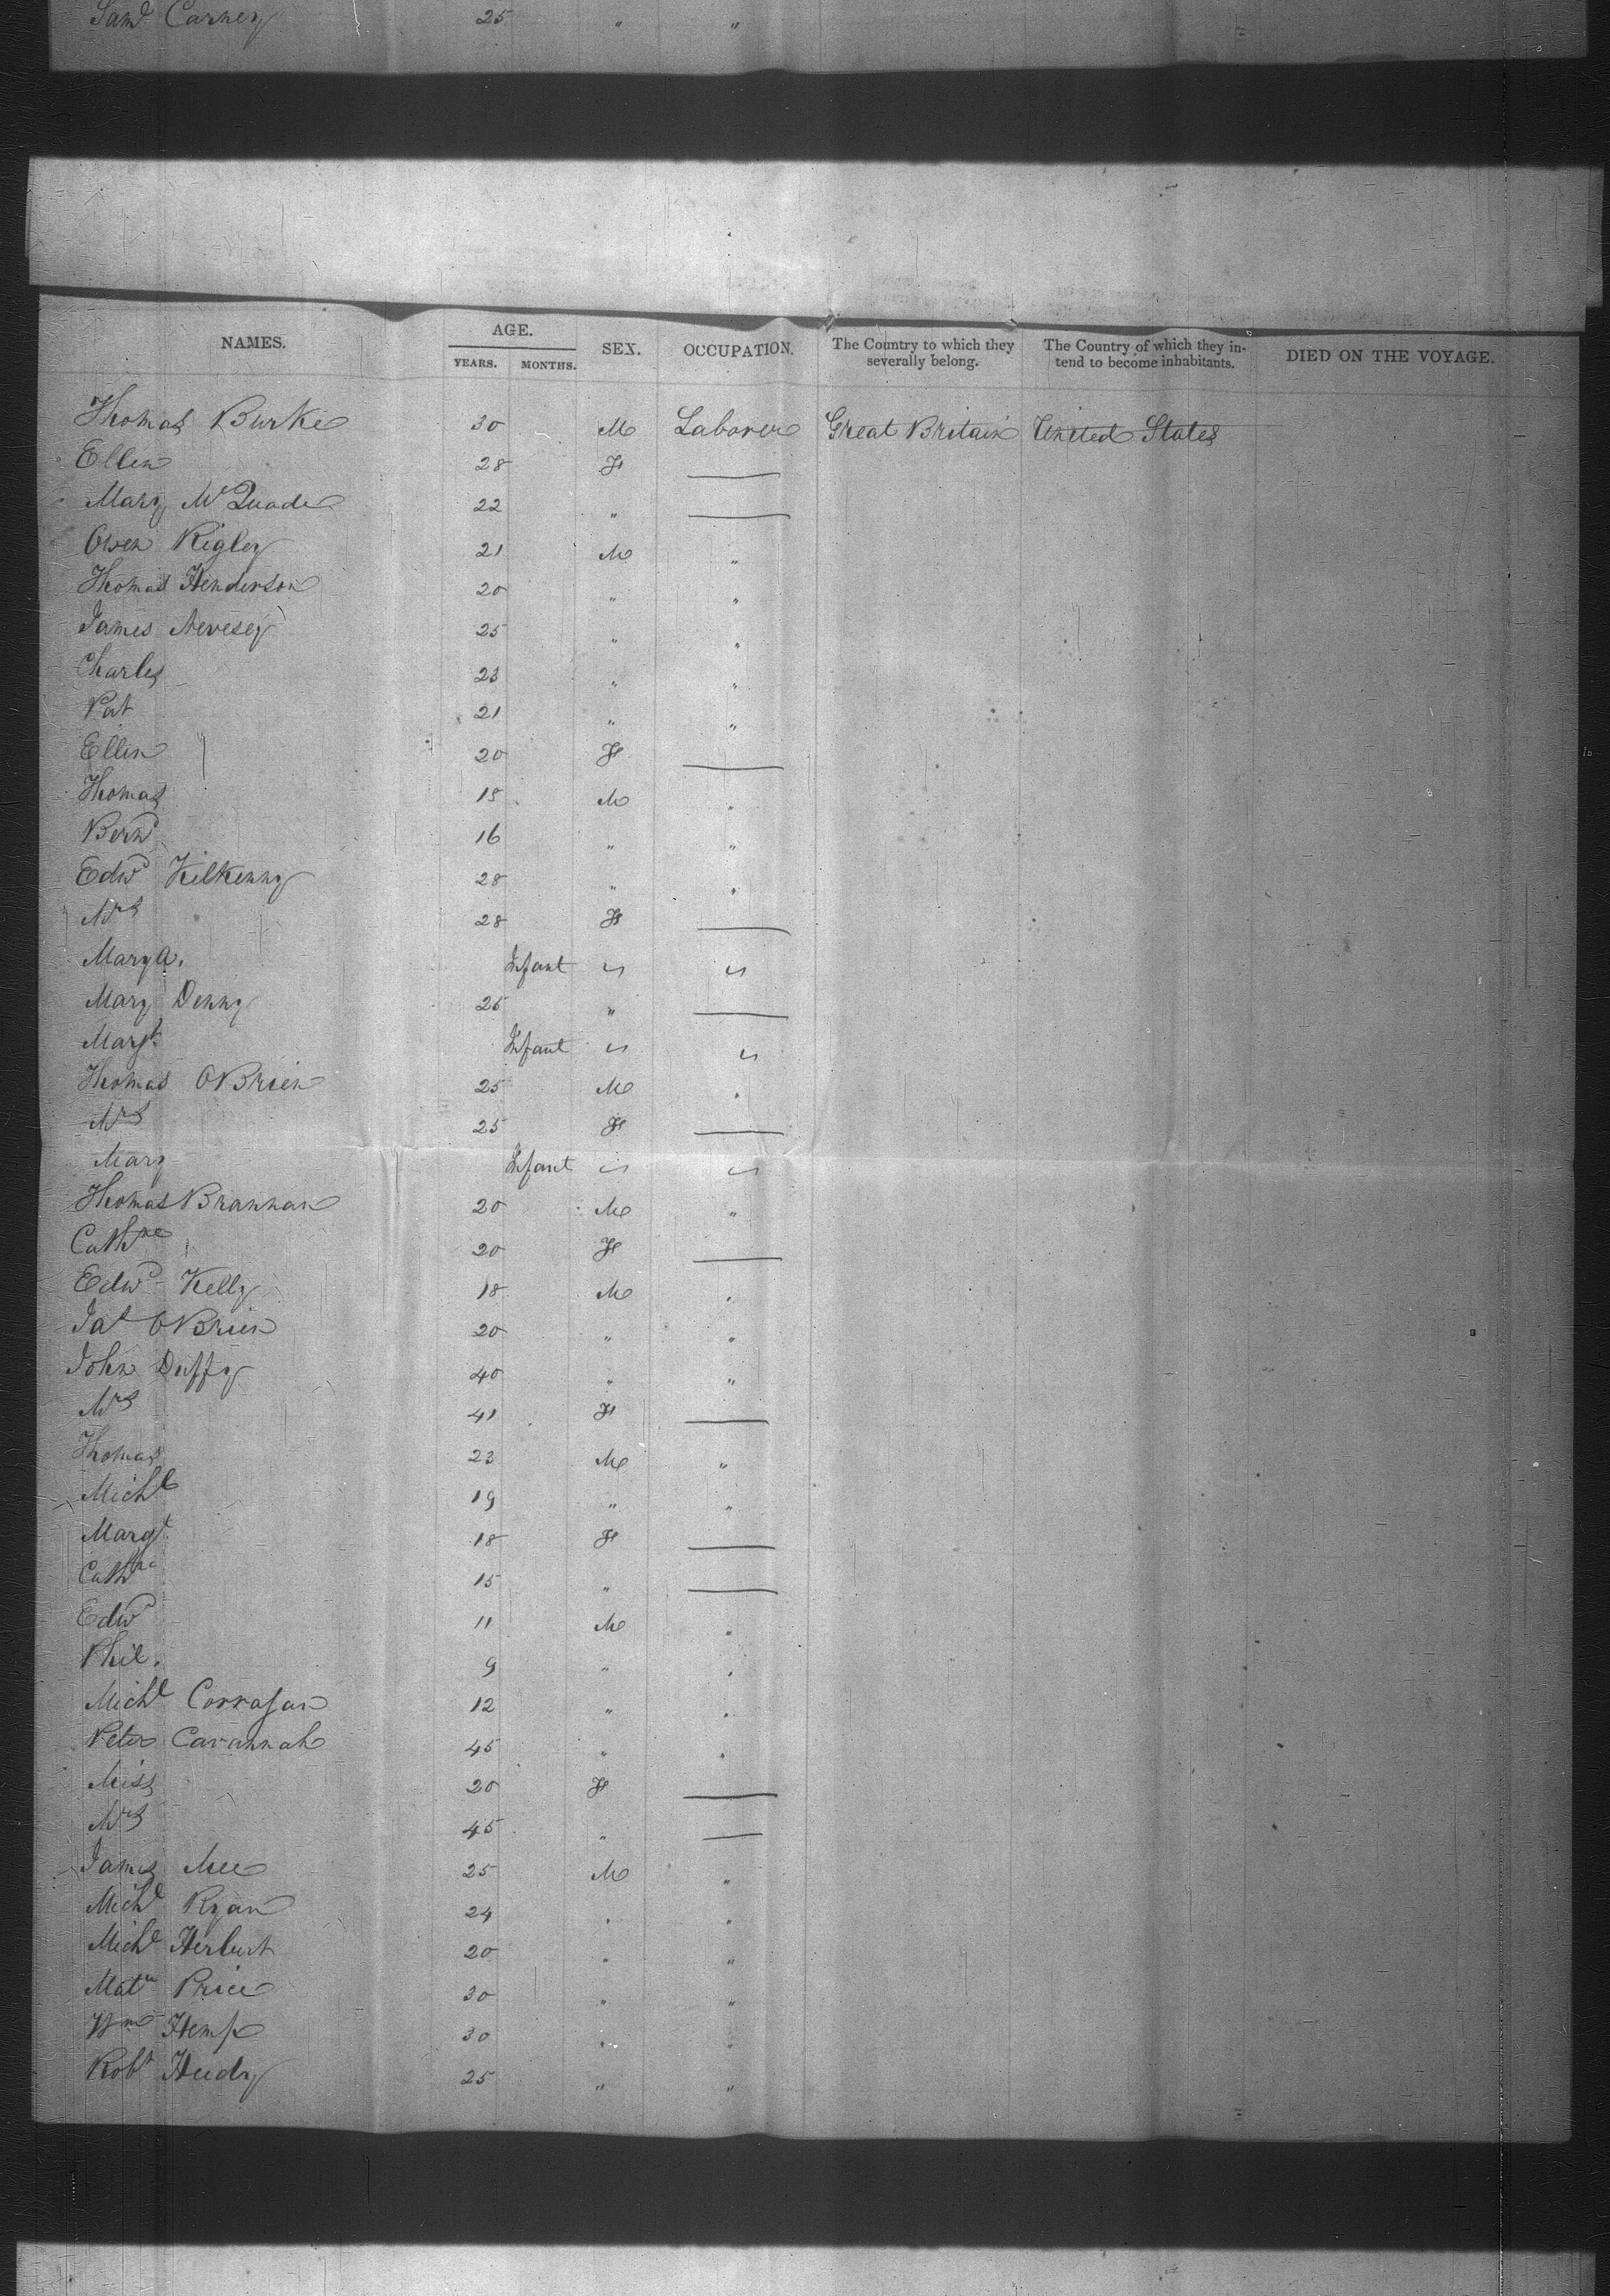 Saml Carney 25 " "
NAMES. AGE. YEARS. MONTHS. SEX. OCCUPATION. The Country to which they severally belong. The Country of which they intend to become inhabitants. DIED ON THE VOYAGE.
Thomas Burke 30 M Laborer Great Britain United States
Ellen 28 F —
Mary McQuade 22 " —
Owen Rigley 21 M "
Thomas Henderson 20 " "
James Nevesey 25 " "
Charles 23 " "
Pat 21 " "
Ellen 20 F —
Thomas 18 M "
Bernd 16 " "
Edwd Kilkenny 28 " "
Mrs 28 F —
Mary A. Infant " "
Mary Denny 25 " —
Margt Infant " "
Thomas OBrien 25 M "
Mrs 25 F —
Mary Infant " "
Thomas Brannan 20 M "
Cathne 20 F —
Edwd Kelly 18 M "
Jas OBrien 20 " "
John Duffy 40 " "
Mrs 41 F —
Thomas 23 M "
Michl 19 " "
Margt 18 F —
Cathne 15 " —
Edwd 11 M "
Phil. 9 " "
Michl 12 " "
Peter Cavannah 45 " "
Miss 20 F —
Mrs 45 " —
James Mee 25 M "
Michl Ryan 24 " "
Michl Herbert 20 " "
Matw Price 30 " "
Wm Hemp 30 " "
Robt 25 " "